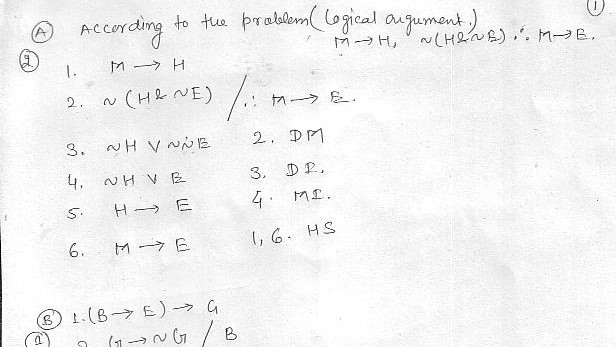 ①
Ⓐ According to the problem (logical argument.)
M → H, ~(H & ~E) ∴ M → E.
②
1. M → H
2. ~ (H & ~E) / ∴ M → E.
3. ~H ∨ ~~E 2. DM
4. ~H ∨ E 3. DN.
5. H → E 4. MI.
6. M → E 1, 6. HS
Ⓑ 1. (B → E) → G
① 2. G → ~G / B